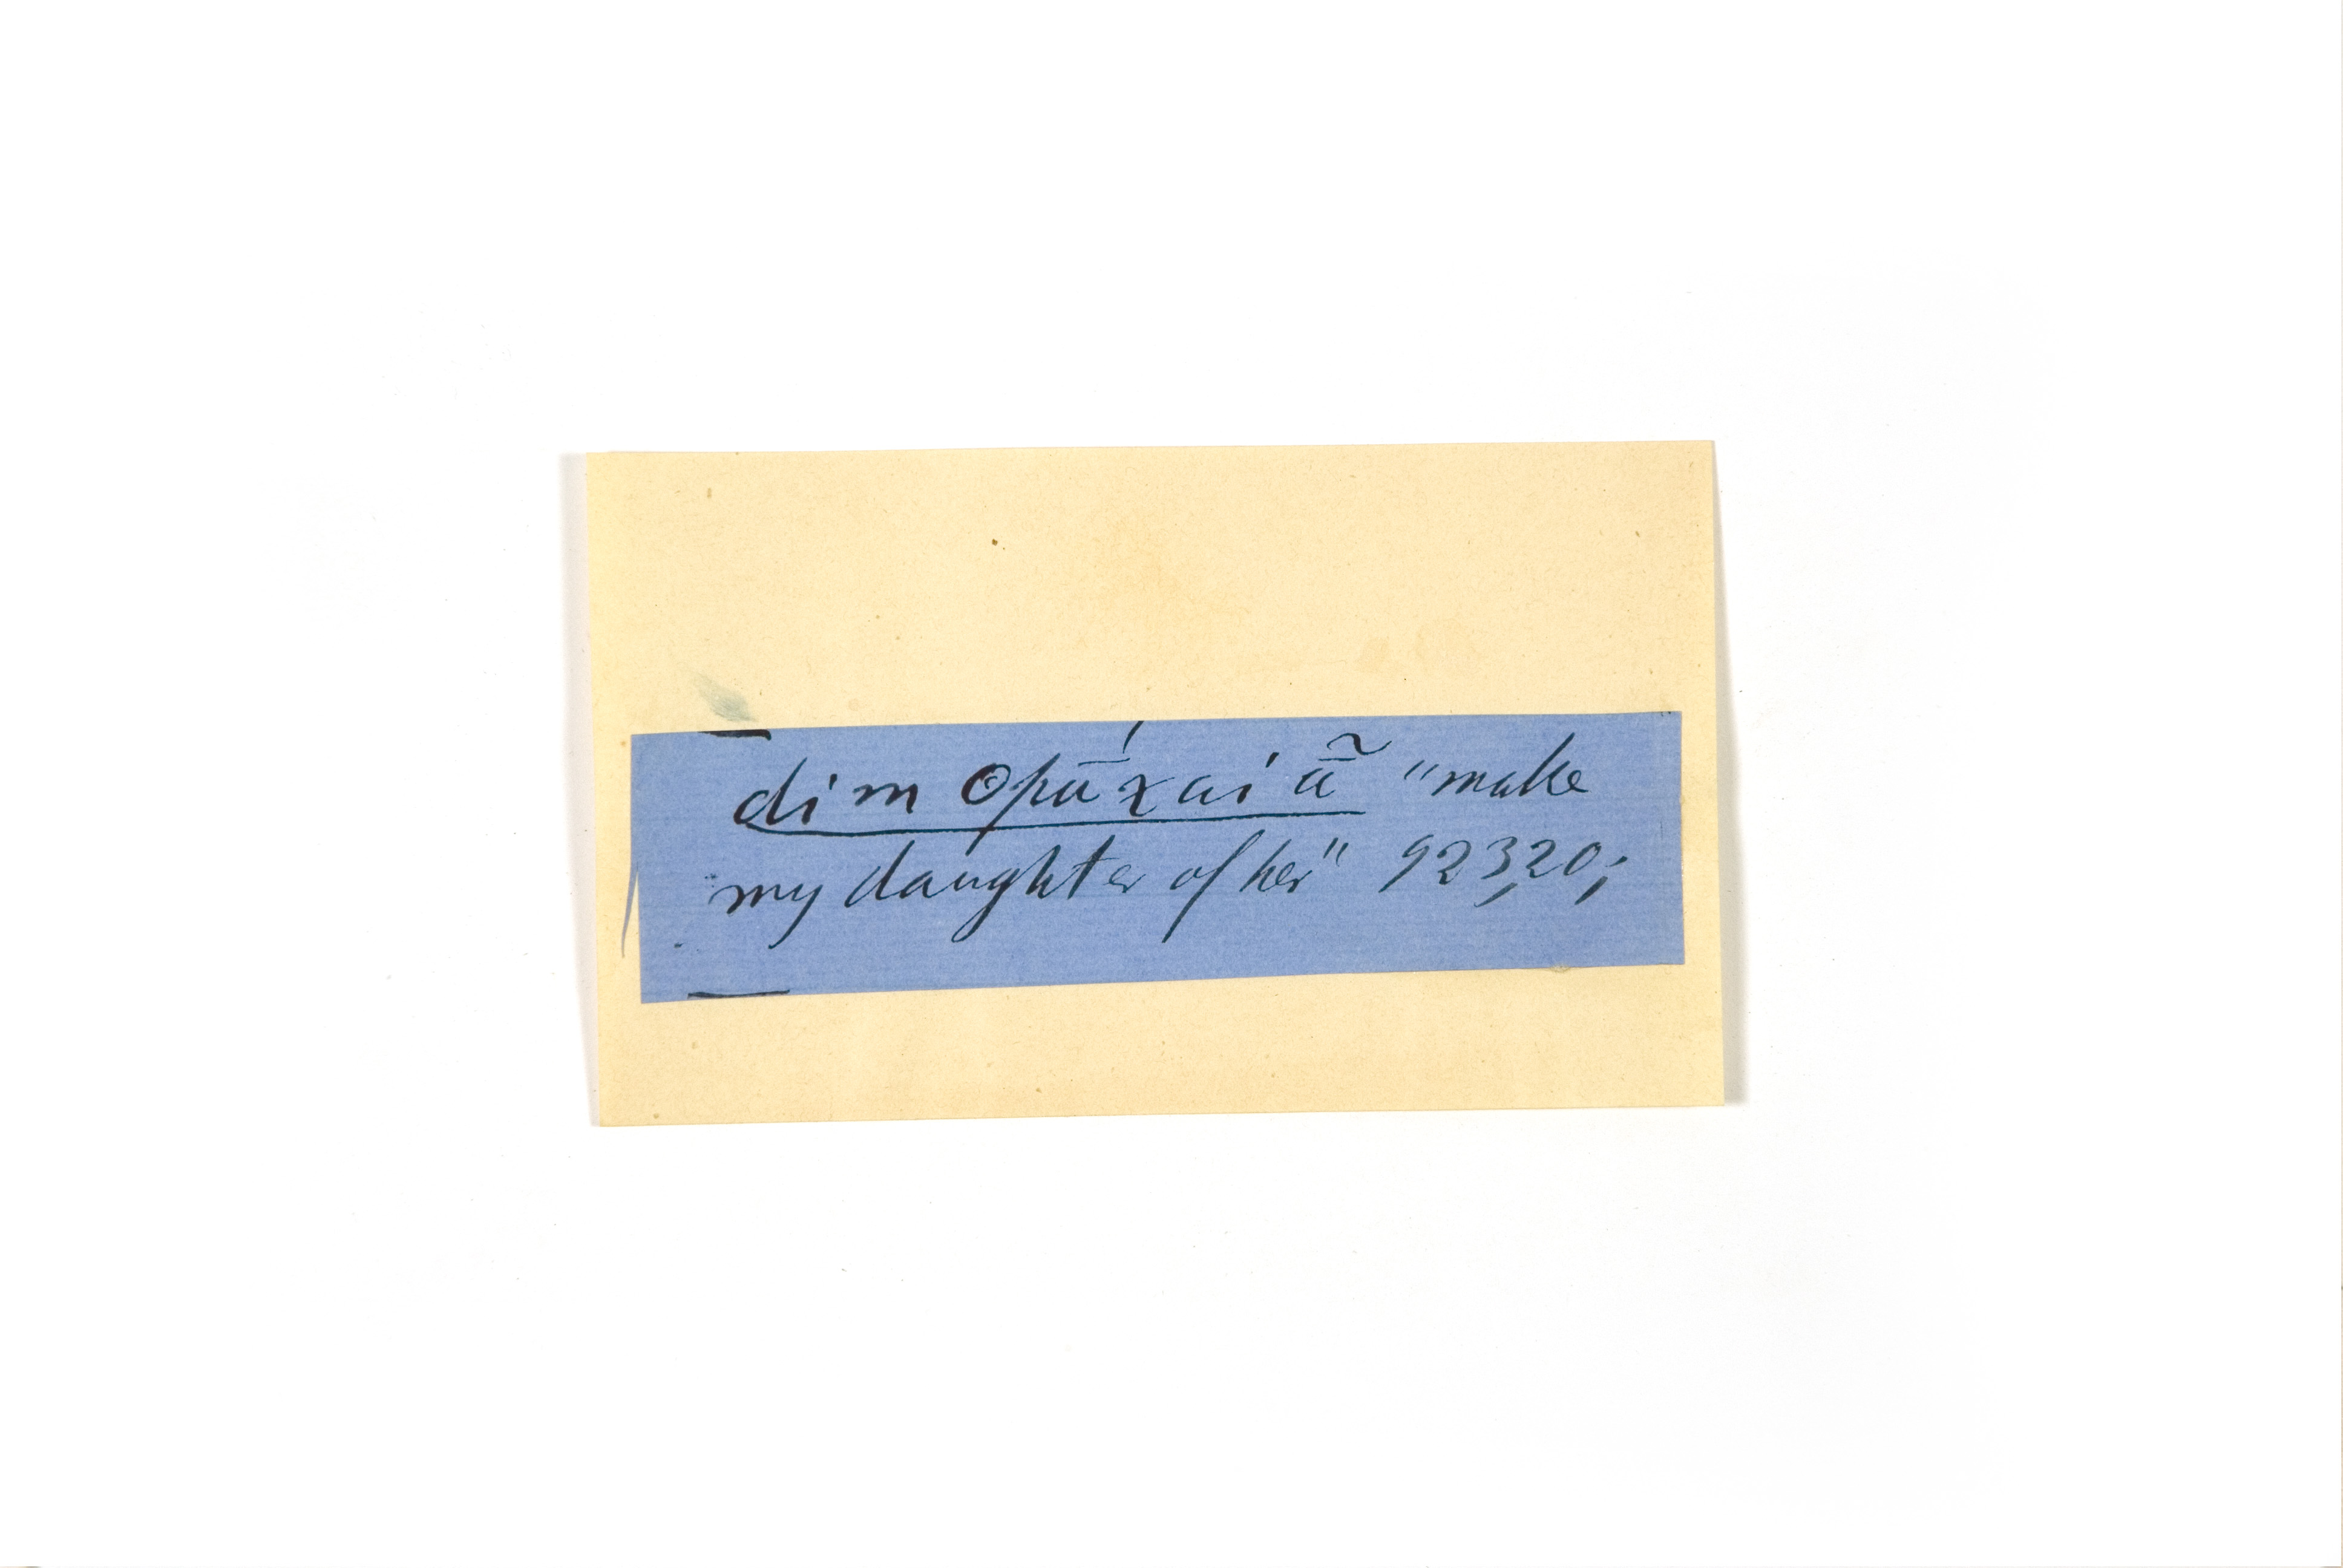 dim Opā́χai ā̃ "make
my daughter of her" 923,20;